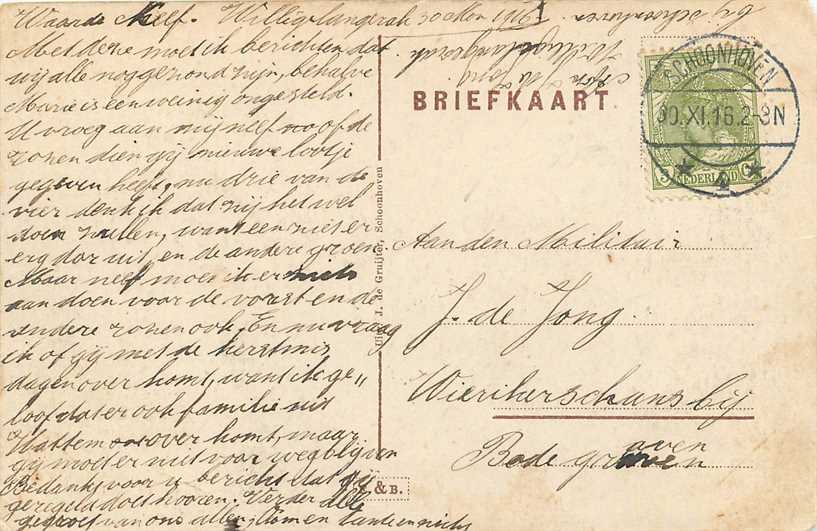 Waarde Neef. Willige langerak 30 Nov 1916
Met deze moet ik berichten dat
wij alle nog gezond zijn, behalve
Marie is een weinig ongesteld.
U vroeg aan mij neef
zonen dien gij nieuwe lootje
gegeven heeft, nu drie van de
vier denk ik dat zij het wel
doen zullen, want een niet er
erg dor uit, en de andere groen
Maar neef moet ik er niets
aan doen voor de vorst en de
andere zonen ook. En nu vraag
ik of gij met de kerstmis
dagen over komt, want ik ge„
loof dat er ook familie uit
Hattem over komt, maar
gij moet er niet voor weg blijven
Bedankt voor u bericht dat gij
geregeld doet hooren. Verder
gegroet van ons allen, Oom en tante en nicht
bij Schoonhoven
Willige langerak
de Jong
BRIEFKAART
SCHOONHOVEN
30.XI.16.2-3N
NEDERLAND
Uitg. J. de Gruijter, Schoonhoven
Aan den Militair
J. de Jong
Wierikerschans bij
Bodegraven
& B.